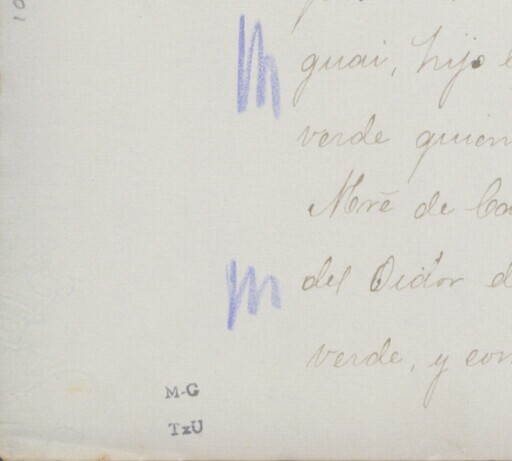 guai, hijo
verde quien
Mrē de
del Oidor d
verde, y con
M-G
TxU